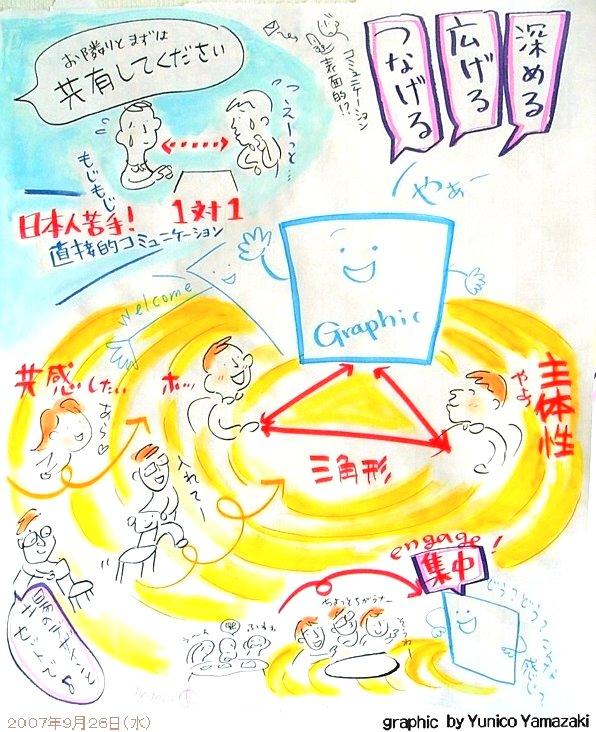 お隣りとまずは
共有してください
コミュニケーション
表面的!?
深める
広げる
つなげる
つえーっと…
もじもじ
日本人苦手!
1対1
直接的コミュニケーション
やぁー
welcome
Graphic
共感したい
ホッ
あら
入れてー
やぁ
主体性
三角形
engage!
集中
うーん
ちょっとちがうなー
どう?どう?
こんな
感じ?
2007年9月26日(水)
graphic by Yunico Yamazaki